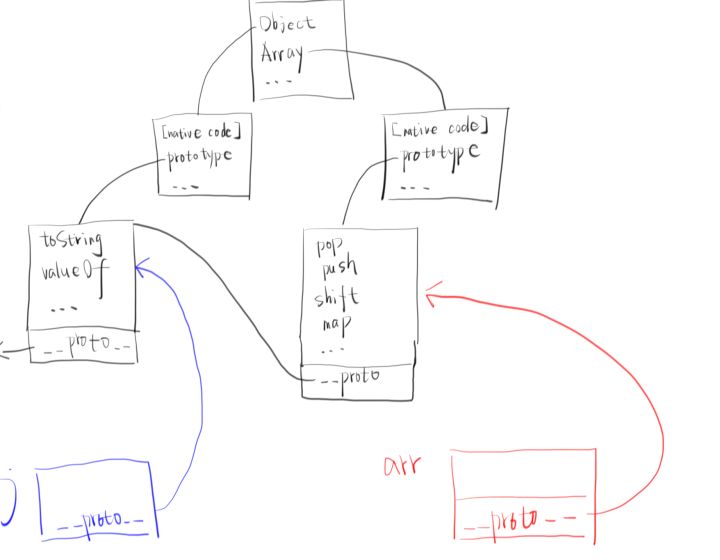 Object
Array
...
[native code]
prototype
...
[native code]
prototype
...
toString
valueOf
...
__proto__
pop
push
shift
map
...
__proto
j
__proto__
arr
__proto__